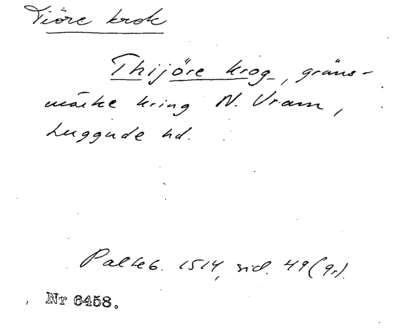 Tiöre krok
Thijöre krog, gräns-
märke kring N. Vram,
Luggude hd.
Palteb. 1514, sid. 49 (9r).
Nr 6458.